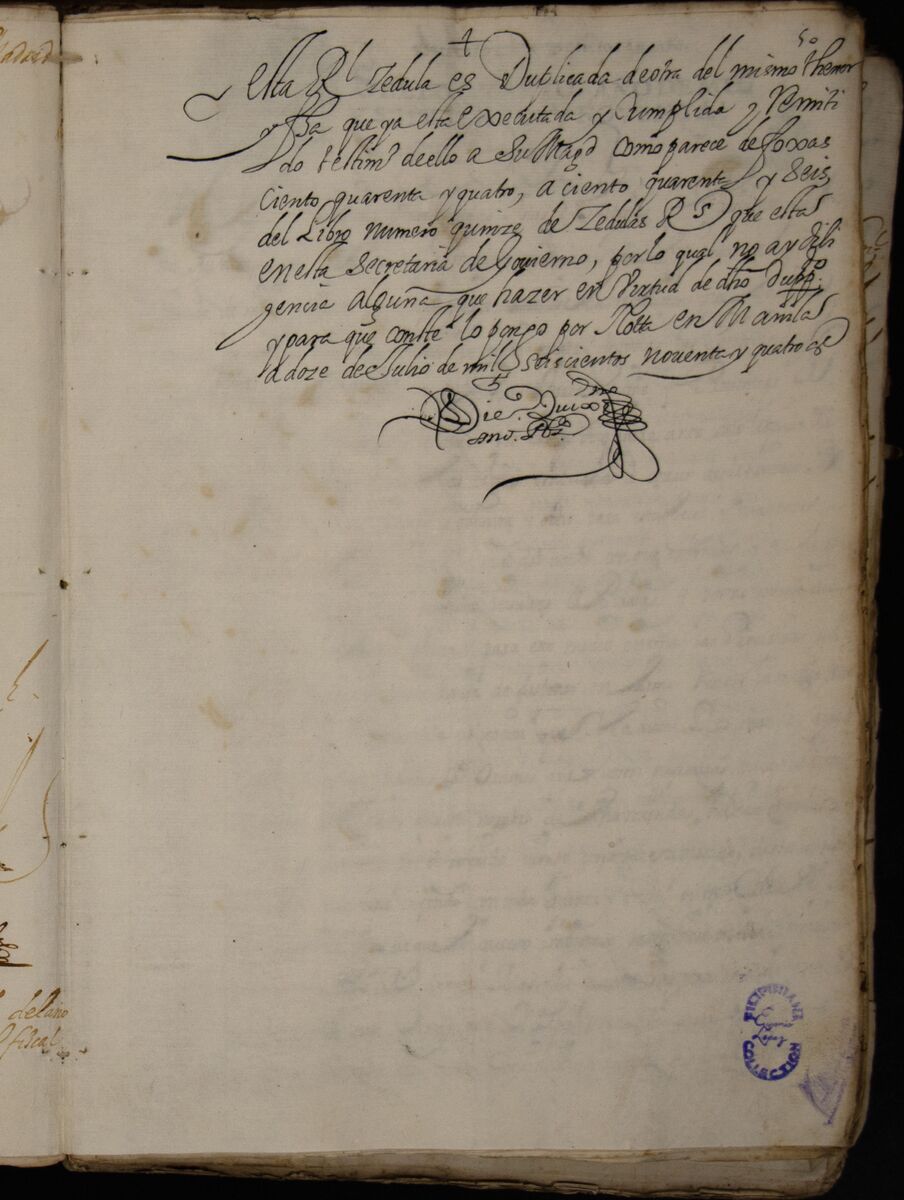 50
esta Rl Zedula es Duplicada de otra del mismo thenor
y fha que ya esta executada y Cumplida y Remiti
do testimo de ello a Su Magd como parece de foxas
ciento quarenta y quatro, a ciento quarenta y Seis
del Libro numero quinze de Zedulas Rs que esta
en esta Secretaria de Govierno, por lo qual no ay dili
gencia alguna que hazer en Virtud de dho Duppdo
y para que conste lo pongo por Notta en Manila
a doze de Julio de mil Seiscientos noventa y quatro as
delano
fiscal
FILIPINIANA
COLLECTION